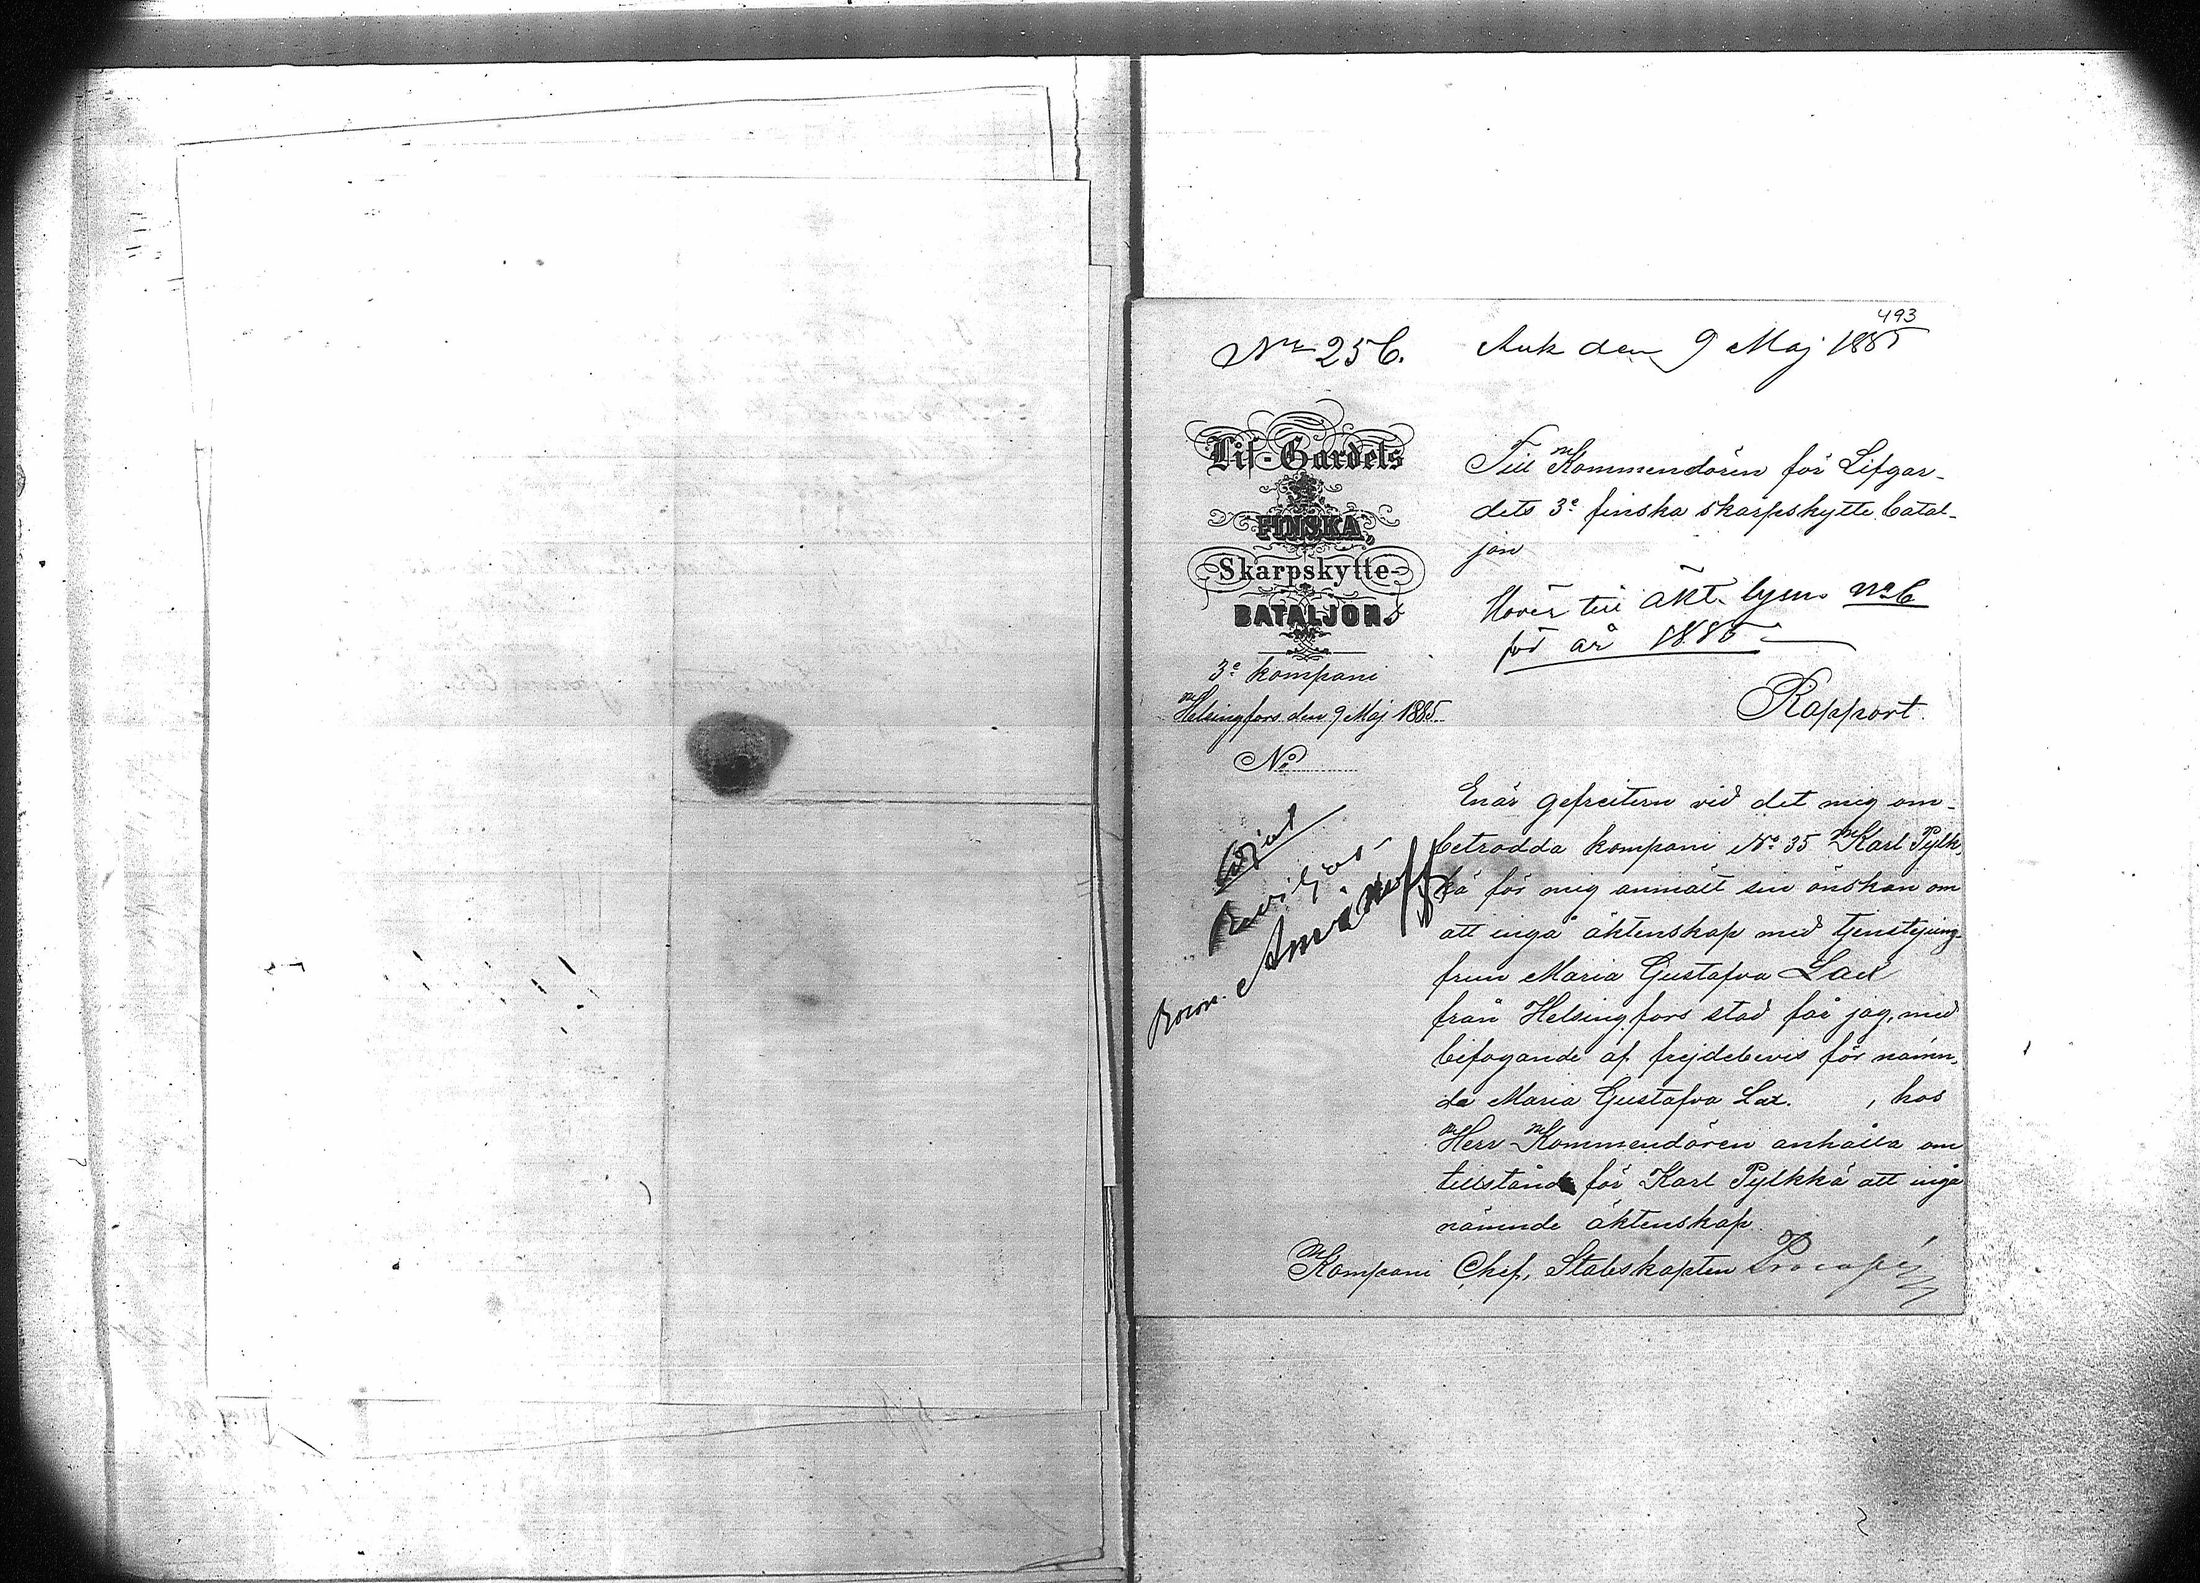 493
No 256. Ank den 9 Maj 1885
Lif-Gardets
FINSKA
Skarpskytte-
BATALJON.
3e kompani
Helsingfors den 9 Maj 1885.
No
Till Kommendören för Lifgar-
dets 3e finska skarpskytte batal-
jon
Hörer till äkt. lysn. No 6
för år 1885
Rapport.
Beviljas
Aminoff
Enär gefreitern vid det mig om-
betrodda kompani No 35 Karl Pylk-
kä för mig anmält sin önskan om
att ingå äktenskap med tjenstejung-
frun Maria Gustafva Lax
från Helsingfors stad får jag, med
bifogande af frejdebevis för nämn-
da Maria Gustafva Lax. , hos
Herr Kommendören anhålla om
tillstånd för Karl Pylkkä att ingå
nämnde äktenskap.
Kompani Chef, Stabskapten Procopé